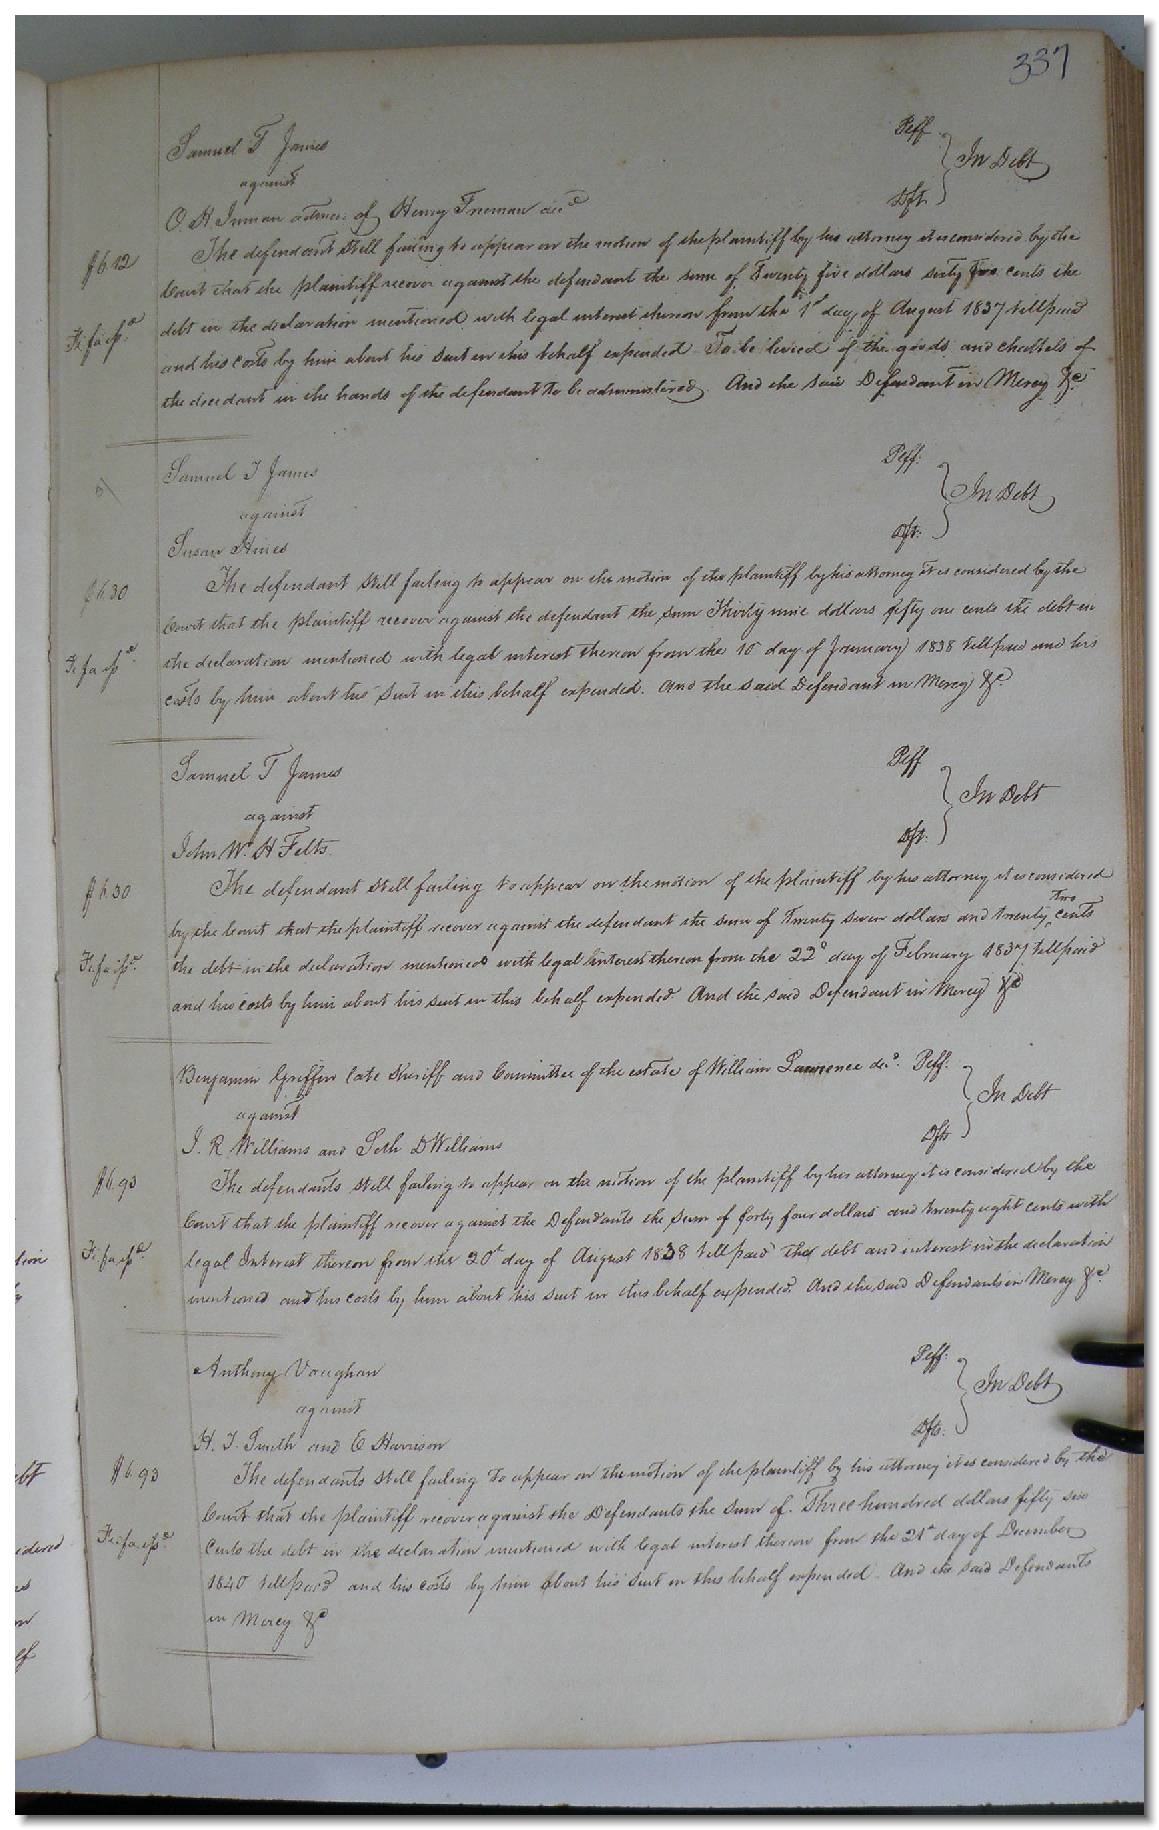 337
Samuel T James Plff
against In Debt
O. H. Inman admr. of Henry Freeman decd Dft
$6.12 The defendant still failing to appear on the motion of the plaintiff by his attorney it is considered by the
Court that the plaintiff recover against the defendant the sum of Twenty five dollars sixty two cents the
Fi. fa. ispd. debt in the declaration mentioned with legal interest thereon from the 1st day of August 1837 till paid
and his costs by him about his suit in this behalf expended To be levied of the goods and chattels of
the decedant in the hands of the defendant to be administered. And the said Defendant in Mercy &c
Samuel T James Plff.
against In Debt
Susan Hines Dft.
$6.30 The defendant still failing to appear on the motion of the plaintiff by his attorney it is considered by the
Court that the plaintiff recover against the defendant the sum Thirty nine dollars fifty one cents the debt in
Fi. fa. ispd. the declaration mentioned with legal interest thereon from the 10 day of January 1838 till paid and his
costs by him about his suit in this behalf expended. And the said Defendant in Mercy &c.
Samuel T James Plff
against In Debt
John W. H Felts. Dft.
$6.30 The defendant still failing to appear on the motion of the plaintiff by his attorney it is considered
two
by the Court that the plaintiff recover against the defendant the sum of Twenty seven dollars and twenty cents
Fi. fa. ispd. the debt in the declaration mentioned with legal interest thereon from the 22d day of February 1837 till paid
and his costs by him about his suit in this behalf expended. And the said Defendant in Mercy &c
Benjamin Griffin late Sheriff and Committee of the estate of William Lawrence decd. Plff.
against In Debt
J. R Williams and Seth D Williams Dfts
$6.93 The defendants still failing to appear on the motion of the plaintiff by his attorney it is considered by the
Court that the plaintiff recover against the Defendants the Sum of forty four dollars and twenty eight cents with
Fi. fa. ispd. legal Interest thereon from the 20th day of August 1838 till paid the debt and interest in the declaration
mentioned and his costs by him about his suit in this behalf expended. And the said Defendants in Mercy &c.
Anthony Vaughan Plff.
against In Debt
H. J. Smith and E Harrison Dfts.
$6.93 The defendants still failing to appear on the motion of the plaintiff by his attorney it is considered by the
Court that the plaintiff recover against the Defendants the Sum of Three hundred dollars fifty six
Fi. fa. ispd. Cents the debt in the declaration mentioned with legal interest thereon from the 21st day of December
1840 till paid and his costs by him about his suit in this behalf expended. And the said Defendants
in Mercy &c